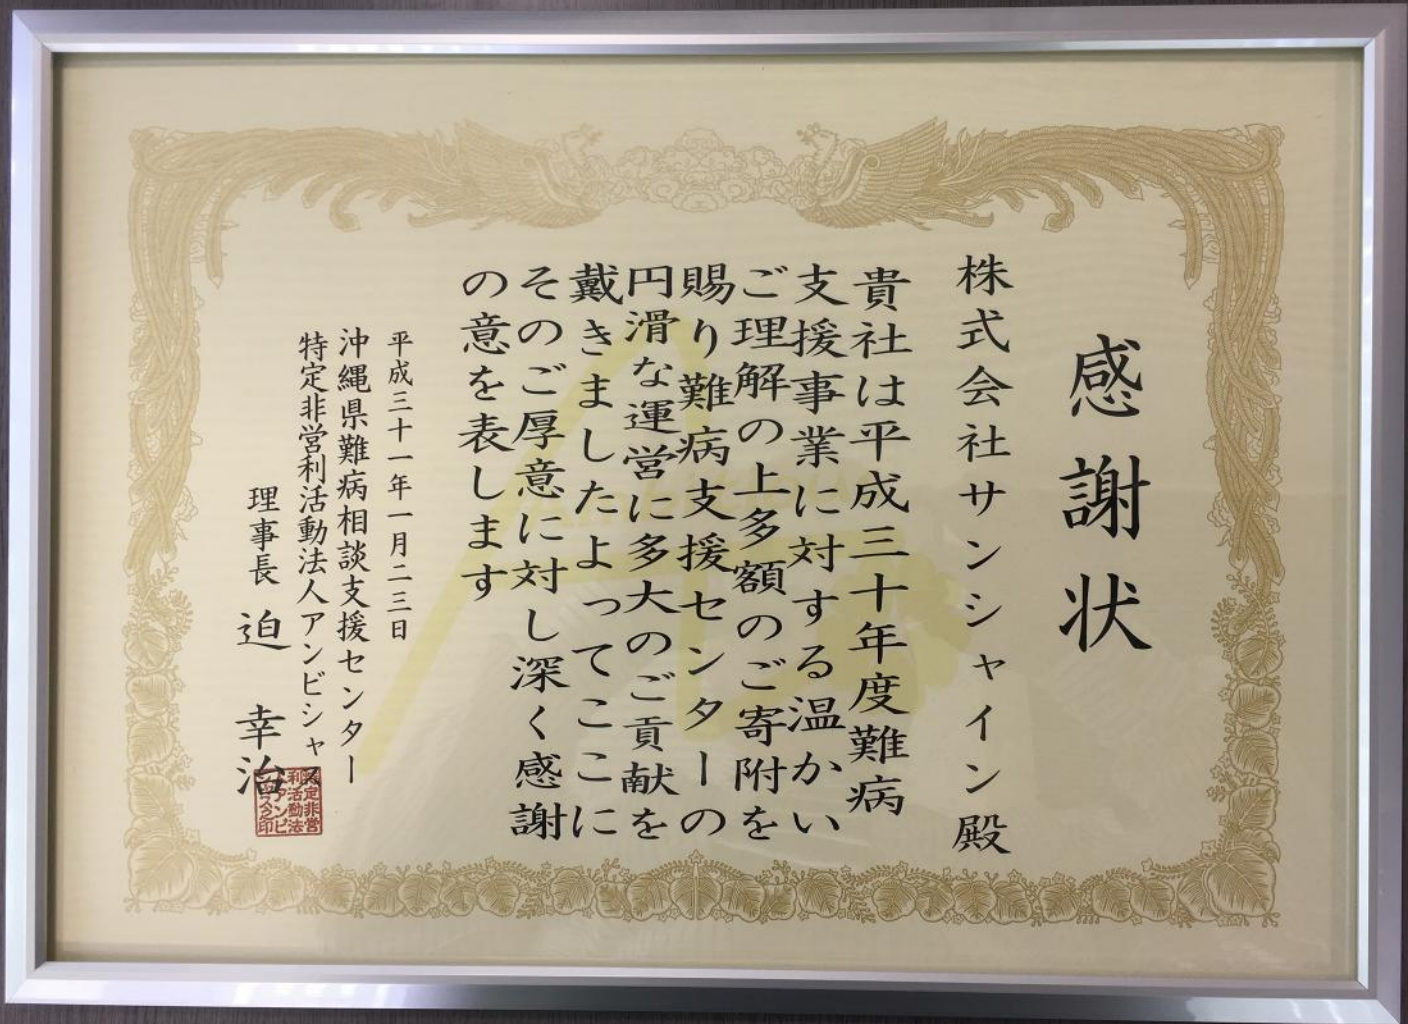 感謝状
株式会社サンシャイン殿
貴社は平成三十年度難病
支援事業に対する温かい
ご理解の上多額のご寄附を
賜り難病支援センターの
円滑な運営に多大のご貢献を
戴きましたよってここに
そのご厚意に対し深く感謝
の意を表します
平成三十一年一月二三日
沖縄県難病相談支援センター
特定非営利活動法人アンビシャス
理事長 迫 幸治